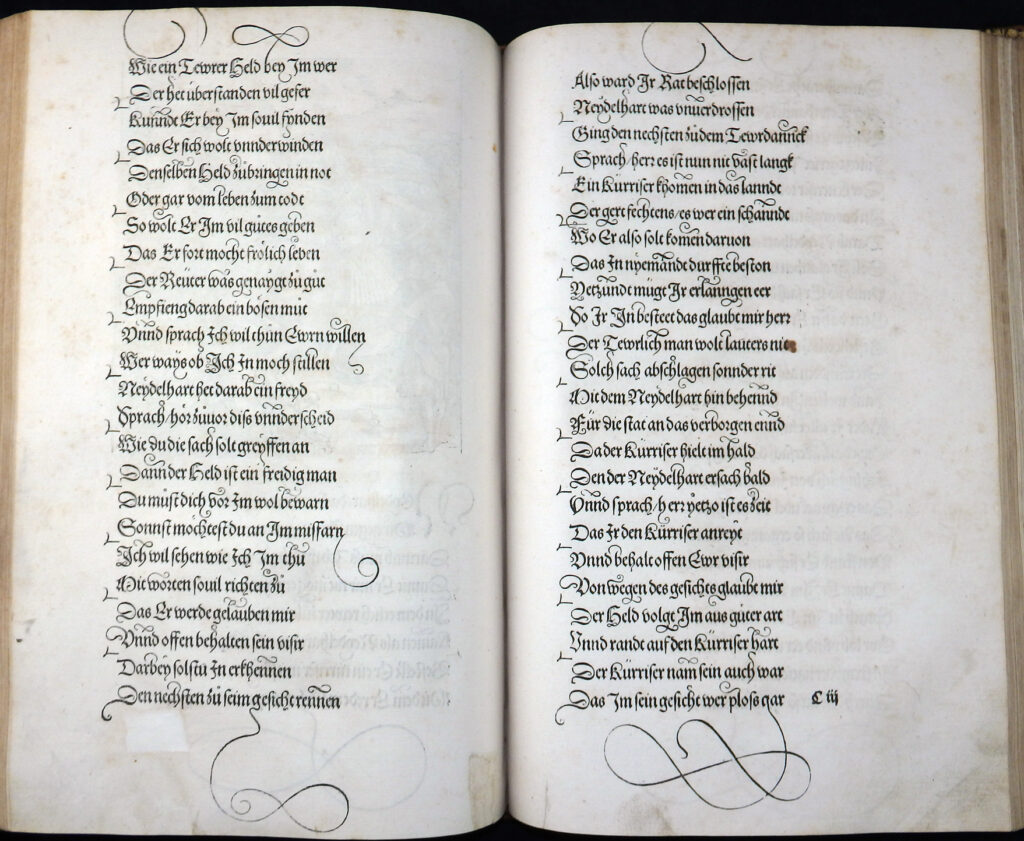 Wie ein Tewrer Held bey Im wer
Der het überstanden vil gefer
Kunndt Er bey Im souil fynden
Das Er sich wolt vnnderwinden
Denselben Held zůbringen in not
Oder gar vom leben zum todt
So wolt Er Im vil gůtes geben
Das Er fort mocht frölich leben
Der Reüter was genaygt zů gůt
Empfieng darab ein bösen můt
Vnnd sprach Ich wil thůn Ewrn willen
Wer ways ob Ich In moch stillen
Neydelhart het darab ein freyd
Sprach/hör zůuor diss vnnderscheid
Wie du die sach solt greyffen an
Dann der Held ist ein freidig man
Du můst dich vor Im wol bewarn
Sonnst möchtest du an Im missfarn
Ich wil sehen wie Ich Im thů
Mit worten souil richten zů
Das Er werde gelauben mir
Vnnd offen behalten sein visir
Darbey solstu In erkhennen
Den nechsten zů seim gesicht rennen
Also ward Ir Rat beschlossen
Neydelhart was vnuerdrossen
Ging den nechsten zů dem Tewrdannck
Sprach/herr es ist nun nit vast langk
Ein Kürriser khomen in das lanndt
Der gert fechtens/es wer ein schanndt
Wo Er also solt komen daruon
Das In nyemandt durffte beston
Yetzundt mügt Ir erlanngen eer
So Ir In besteet das glaubt mir herr
Der Tewrlich man wolt lauters nit
Solch sach abschlagen sonnder rit
Mit dem Neydelhart hin behennd
Für die stat an das verborgen ennd
Da der Kürriser hielt im hald
Den der Neydelhart ersach bald
Vnnd sprach/herr yetzo ist es zeit
Das Ir den Kürriser anreyt
Vnnd behalt offen Ewr visir
Von wegen des gesichts glaubt mir
Der Held volgt Im aus gůter art
Vnnd randt auf den Kürriser hart
Der Kürriser nam sein auch war
Das Im sein gesicht wer ploss gar C iij